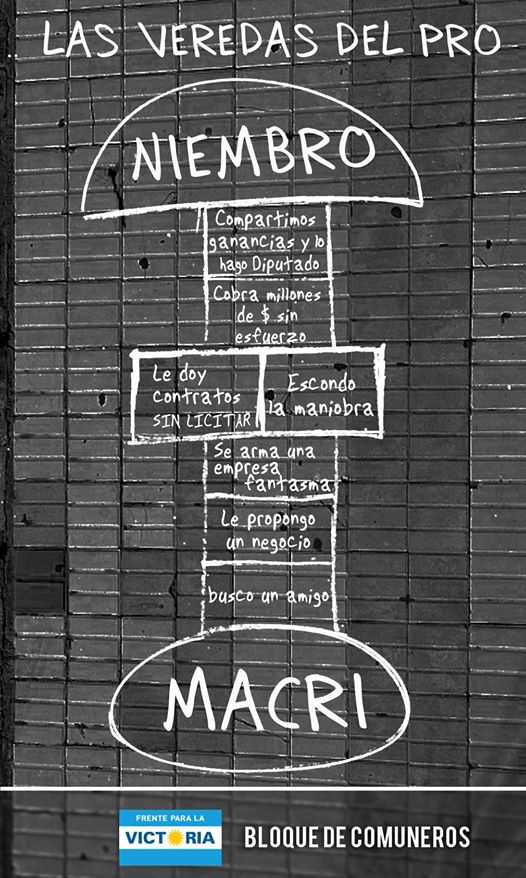 LAS VEREDAS DEL PRO
NIEMBRO
Compartimos
ganancias y lo
hago Diputado
Cobra millones
de $ sin
esfuerzo
Le doy
contratos
SIN LICITAR
Escondo
la maniobra
Se arma una
empresa
fantasma
Le propongo
un negocio
busco un amigo
MACRI
FRENTE PARA LA
VICTORIA
BLOQUE DE COMUNEROS